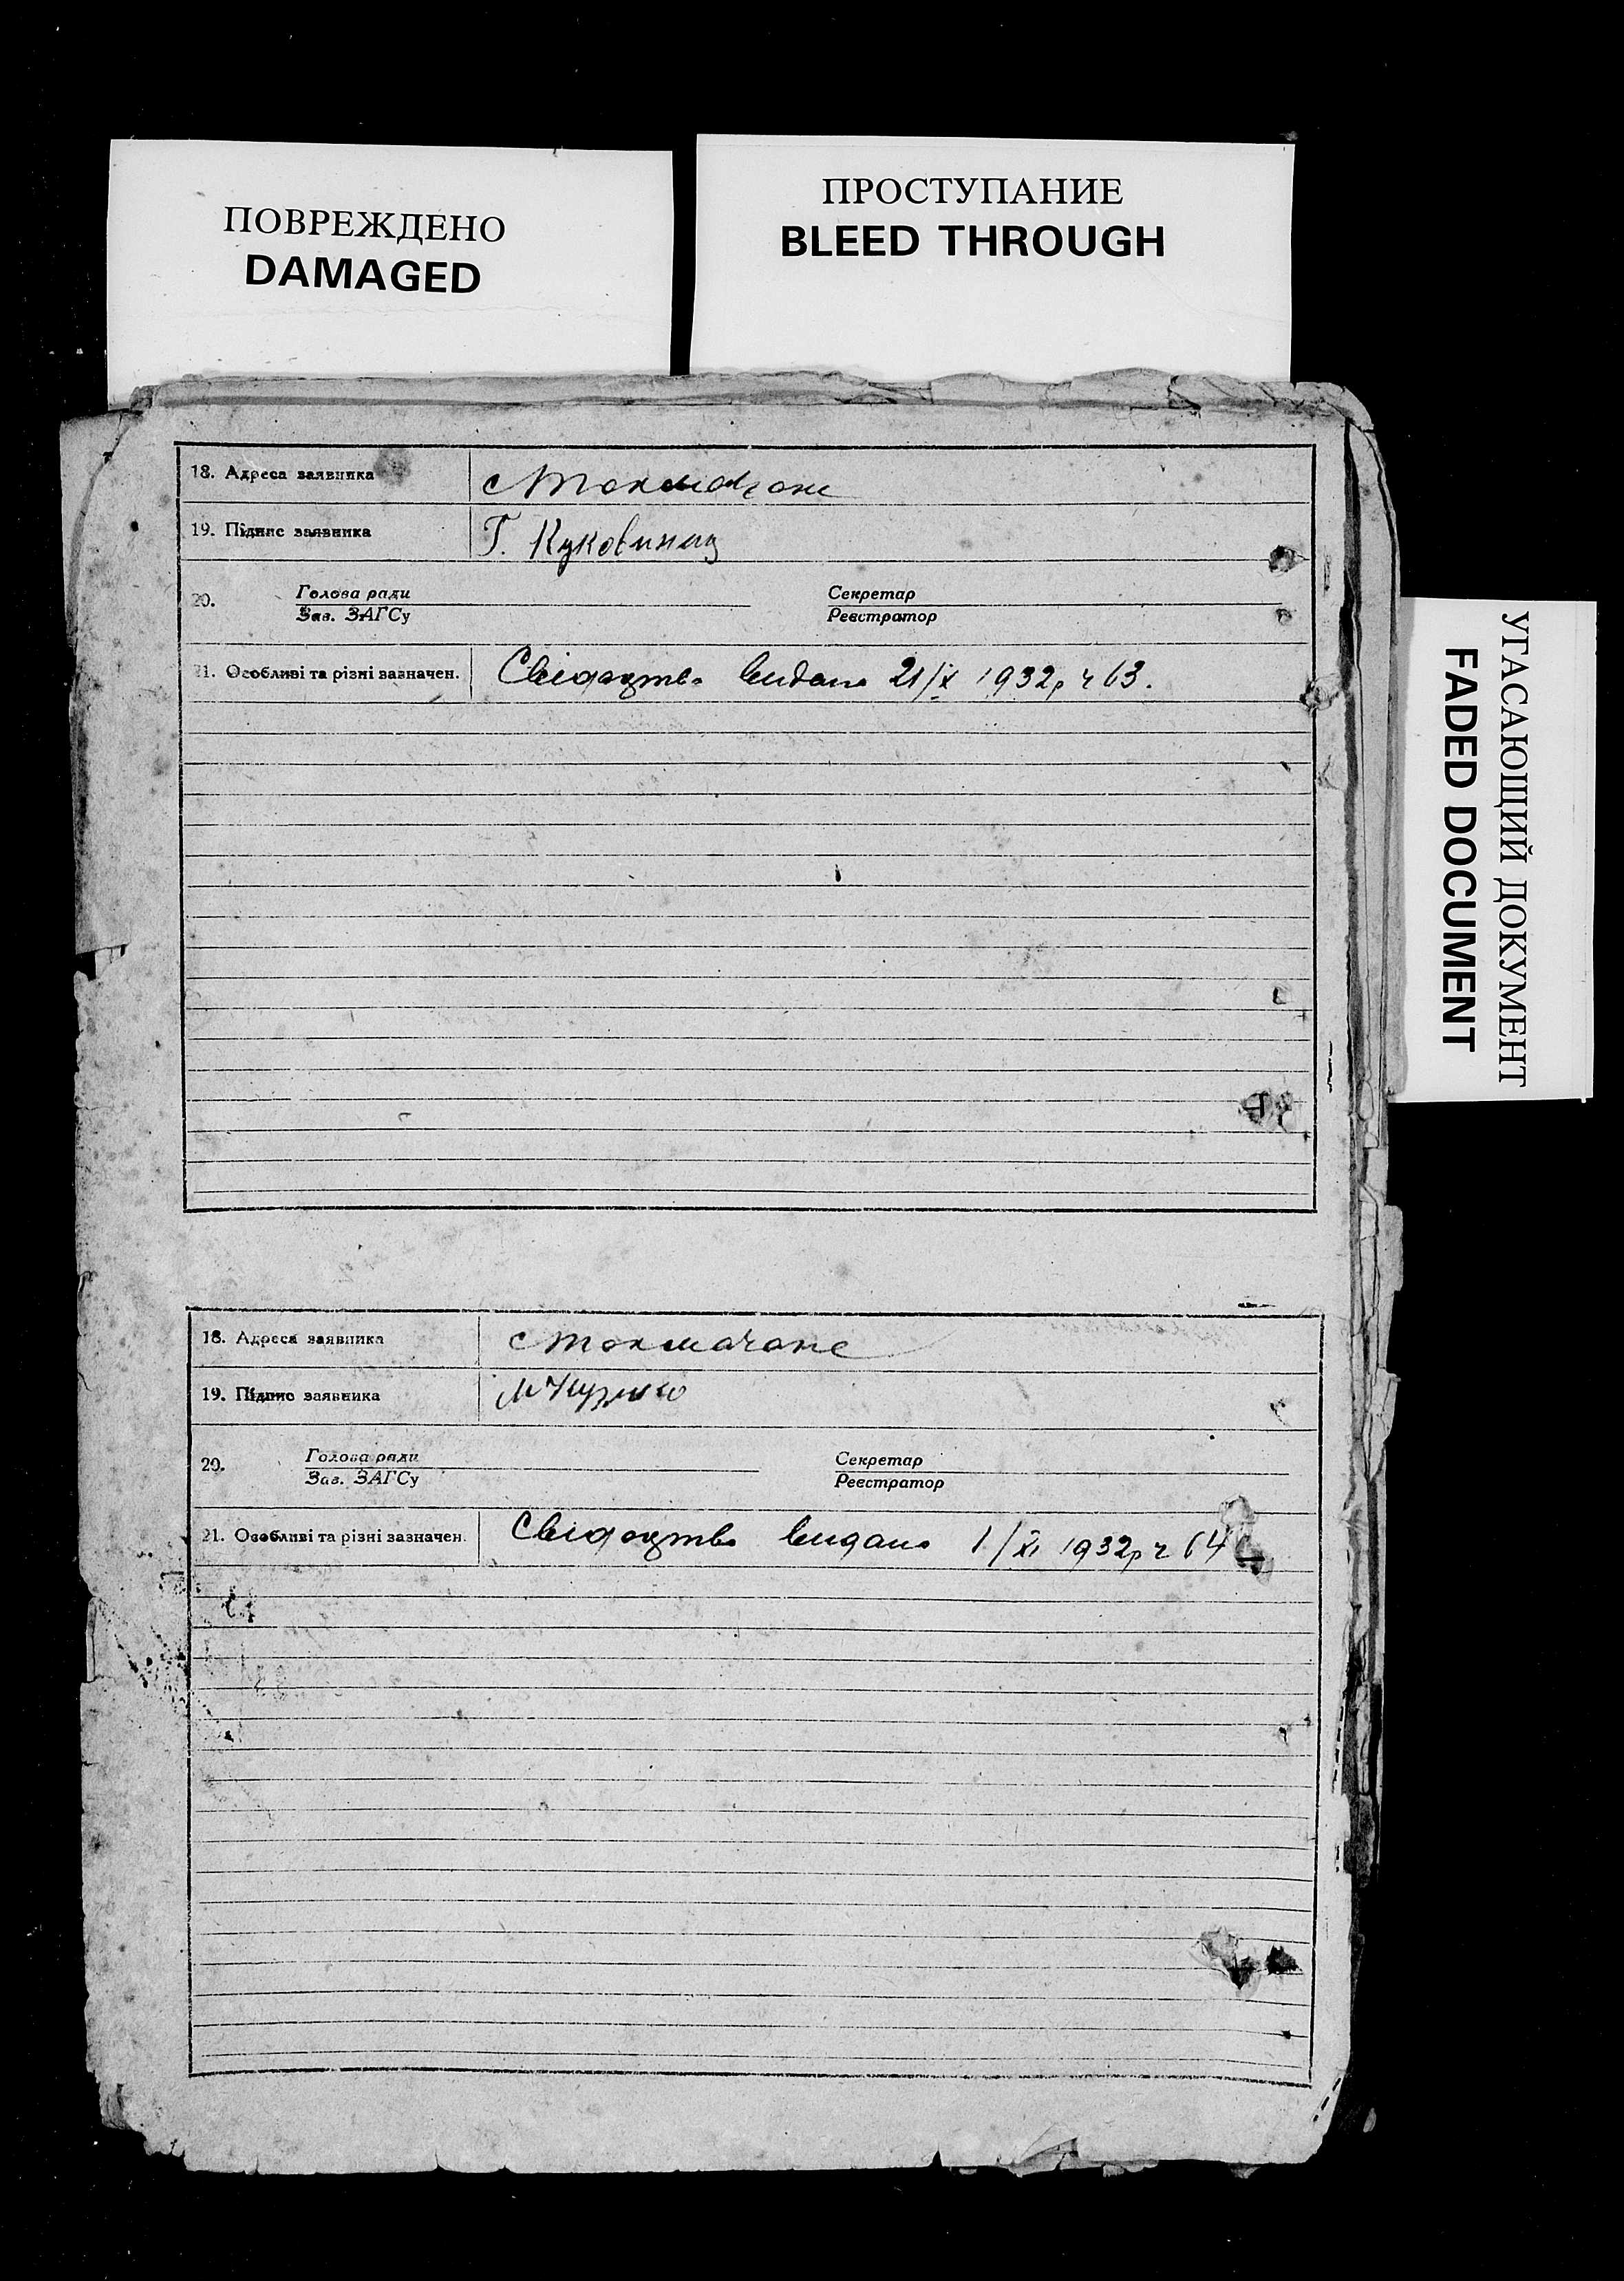 ПОВРЕЖДЕНО
DAMAGED
ПРОСТУПАНИЕ
BLEED THROUGH
УГАСАЮЩИЙ ДОКУМЕНТ
FADED DOCUMENT
18. Адреса заявника с Токмачане
19. Підпис заявника Г.
20. Голова ради Секретар
Зав. ЗАГСу Реєстратор
21. Особливі та різні зазначен. Свідоцтво видано 21/X 1932р ч 63.
18. Адреса заявника с Токмачане
19. Підпис заявника М
20. Голова ради Секретар
Зав. ЗАГСу Реєстратор
21. Особливі та різні зазначен. Свідоцтво видано 1/XI 1932р ч 64